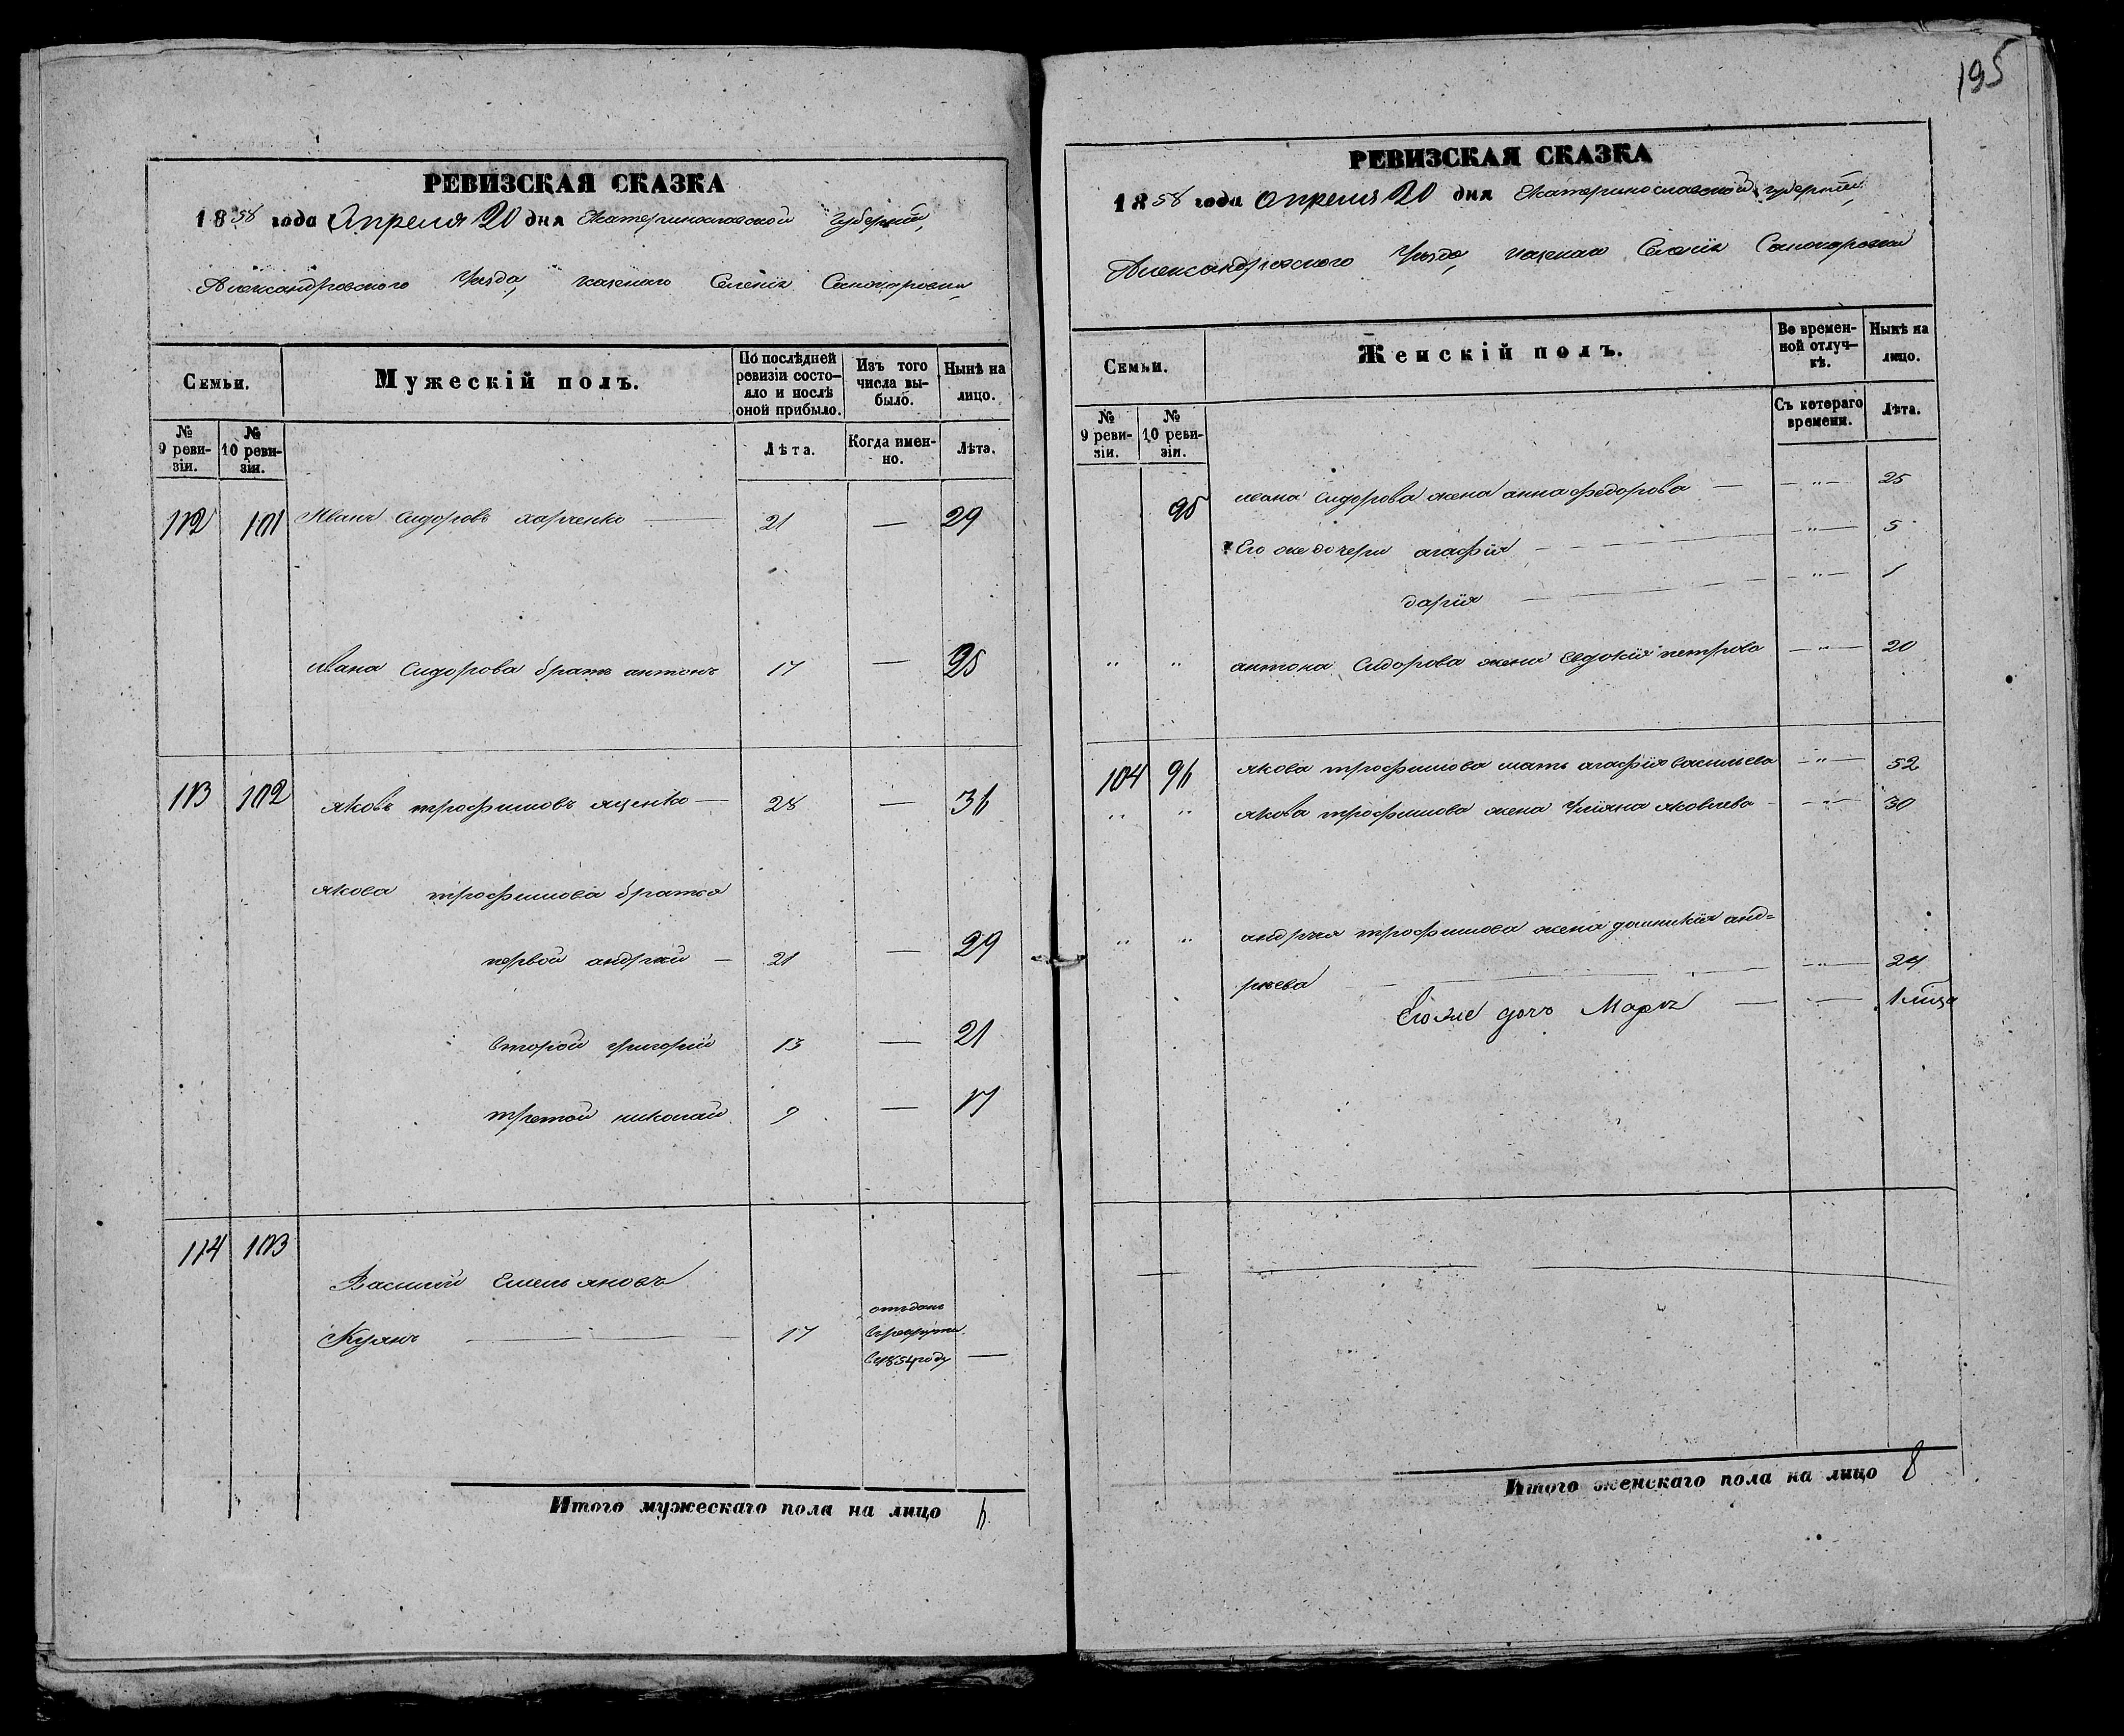 РЕВИЗСКАЯ СКАЗКА
1858 года Апреля 20 дня Екатеринославской губернии,
Александровского уѣзда, казенаго Селенія
Семьи.
Мужескій полъ.
По послѣдней ревизіи состо-
яло и послѣ
оной прибыло.
Изъ того
числа вы-
было.
Нынѣ на
лицо.
№
9 реви-
зіи.
№
10 реви-
зіи.
Лѣта.
Когда имен-
но.
Лѣта.
112 101 Иванъ Сидоровъ харченко — 21 — 29
ивана Сидорова братъ антонъ 17 — 25
113 102 яковъ трофимовъ яценко — 28 — 36
якова трофимова братья
первой андрей — 21 — 29
второй григорій 13 — 21
третой николай 9 — 17
114 103
Василий Емельяновъ
Куянъ — 17
отъданъ
в рекруты
в 1854 году —
Итого мужескаго пола на лицо 6
195
РЕВИЗСКАЯ СКАЗКА
1858 года Апреля 20 дня Екатеринославской губерніи,
Александровского уѣзда, казенаго Селенія
Семьи.
Женскій полъ.
Во времен-
ной отлуч-
кѣ.
Нынѣ на
лицо.
№
9 реви-
зіи.
№
10 реви-
зіи.
Съ котораго
времени.
Лѣта.
95 ивана Сидорова жена анна федорова — — „ — 25
Его же дочери агафія — — „ — 5
дарія — — „ — 1
„ „ антона Сидорова жена Евдокія петрова — „ — 20
104 96 якова трофимова мать агафія васильева — „ — 52
„ „ якова трофимова жена Уліяна яковлева — „ — 30
„ „ андрея трофимова жена домникія анд=
рѣева — — „ —
Его же дочь —
Итого женскаго пола на лицо 8